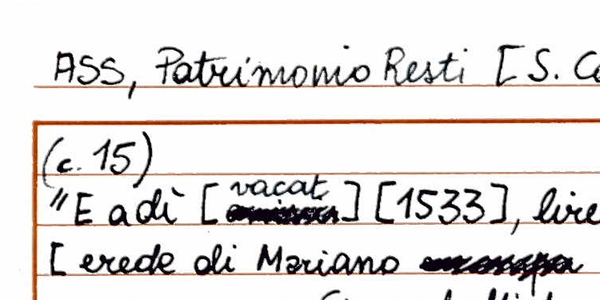 ASS, Patrimonio Resti [S. 
(c. 15)
"E adì [vacat] [1533], lire
[erede di Mariano